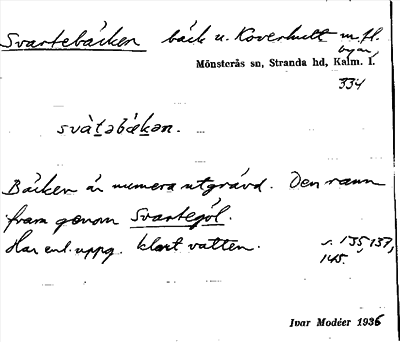 Svartebäcken bäck u. Koverhult m.fl.
byar,
Mönsterås sn, Stranda hd, Kalm. l.
334
svàtəbækən.
Bäcken är numera utgrävd. Den rann
fram genom Svartegöl.
Har enl. uppg. klart vatten.
s. 135, 137,
145.
Ivar Modéer 1936